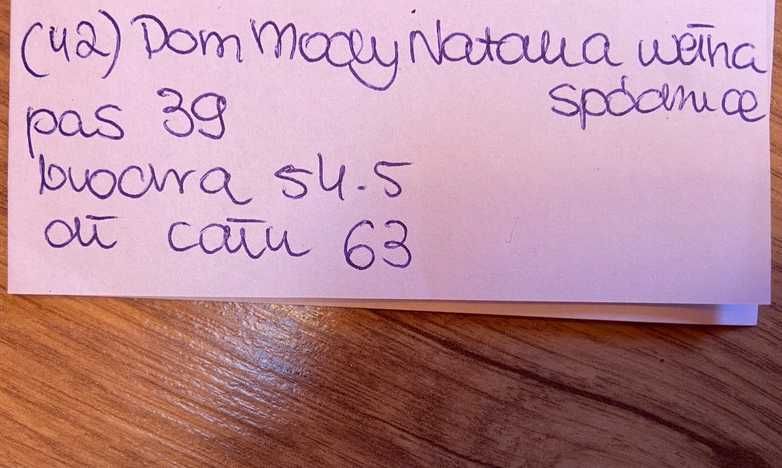 (42) Dom Mody Natalia wełna
spódnice
pas 39
biodra 54.5
dł całk 63